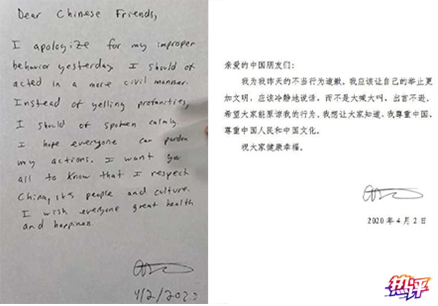 Dear Chinese Friends,
I apologize for my improper
behavior yesterday. I should of
acted in a more civil manner.
Instead of yelling profanities,
I should of spoken calmly
I hope everyone can pardon
my actions. I want you
all to know that I respect
China, its people and culture.
I wish everyone great health
and happiness
4/2/2020
亲爱的中国朋友们：
我为我昨天的不当行为道歉。我应该让自己的举止更
加文明，应该冷静地说话，而不是大喊大叫，出言不逊。
希望大家能原谅我的行为。我想让大家知道，我尊重中国，
尊重中国人民和中国文化。
祝大家健康幸福。
2020 年 4 月 2 日
热评